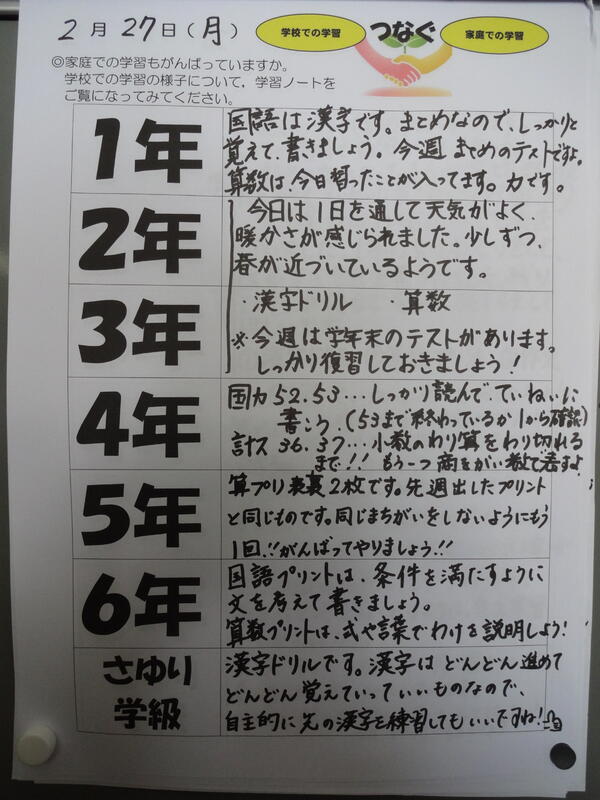 2月27日(月)
学校での学習
つなぐ
家庭での学習
◎家庭での学習もがんばっていますか。
学校での学習の様子について，学習ノートを
ご覧になってみてください。
1年
国語は漢字です。まとめなので、しっかりと
覚えて、書きましょう。今週まとめのテストですよ。
算数は、今日習ったことが入ってます。力です。
2年
今日は1日を通して天気がよく、
暖かさが感じられました。少しずつ、
春が近づいているようです。
3年
・漢字ドリル ・算数
※今週は学年末のテストがあります。
しっかり復習しておきましょう!
4年
国力 52.53…しっかり読んで、ていねいに
書こう.(53まで終わっているか1から確認)
計ス 36.37…小数のわり算をわり切れる
まで!! もう一つ 商をがい数で表すよ
5年
算プリ表裏2枚です。先週出したプリント
と同じものです。同じまちがいをしないようにもう
1回!!がんばってやりましょう!!
6年
国語プリントは、条件を満たすように
文を考えて書きましょう。
算数プリントは、式や言葉でわけを説明しよう!
さゆり
学級
漢字ドリルです。漢字はどんどん進めて
どんどん覚えていっていいものなので、
自主的に先の漢字を練習してもいいですね!